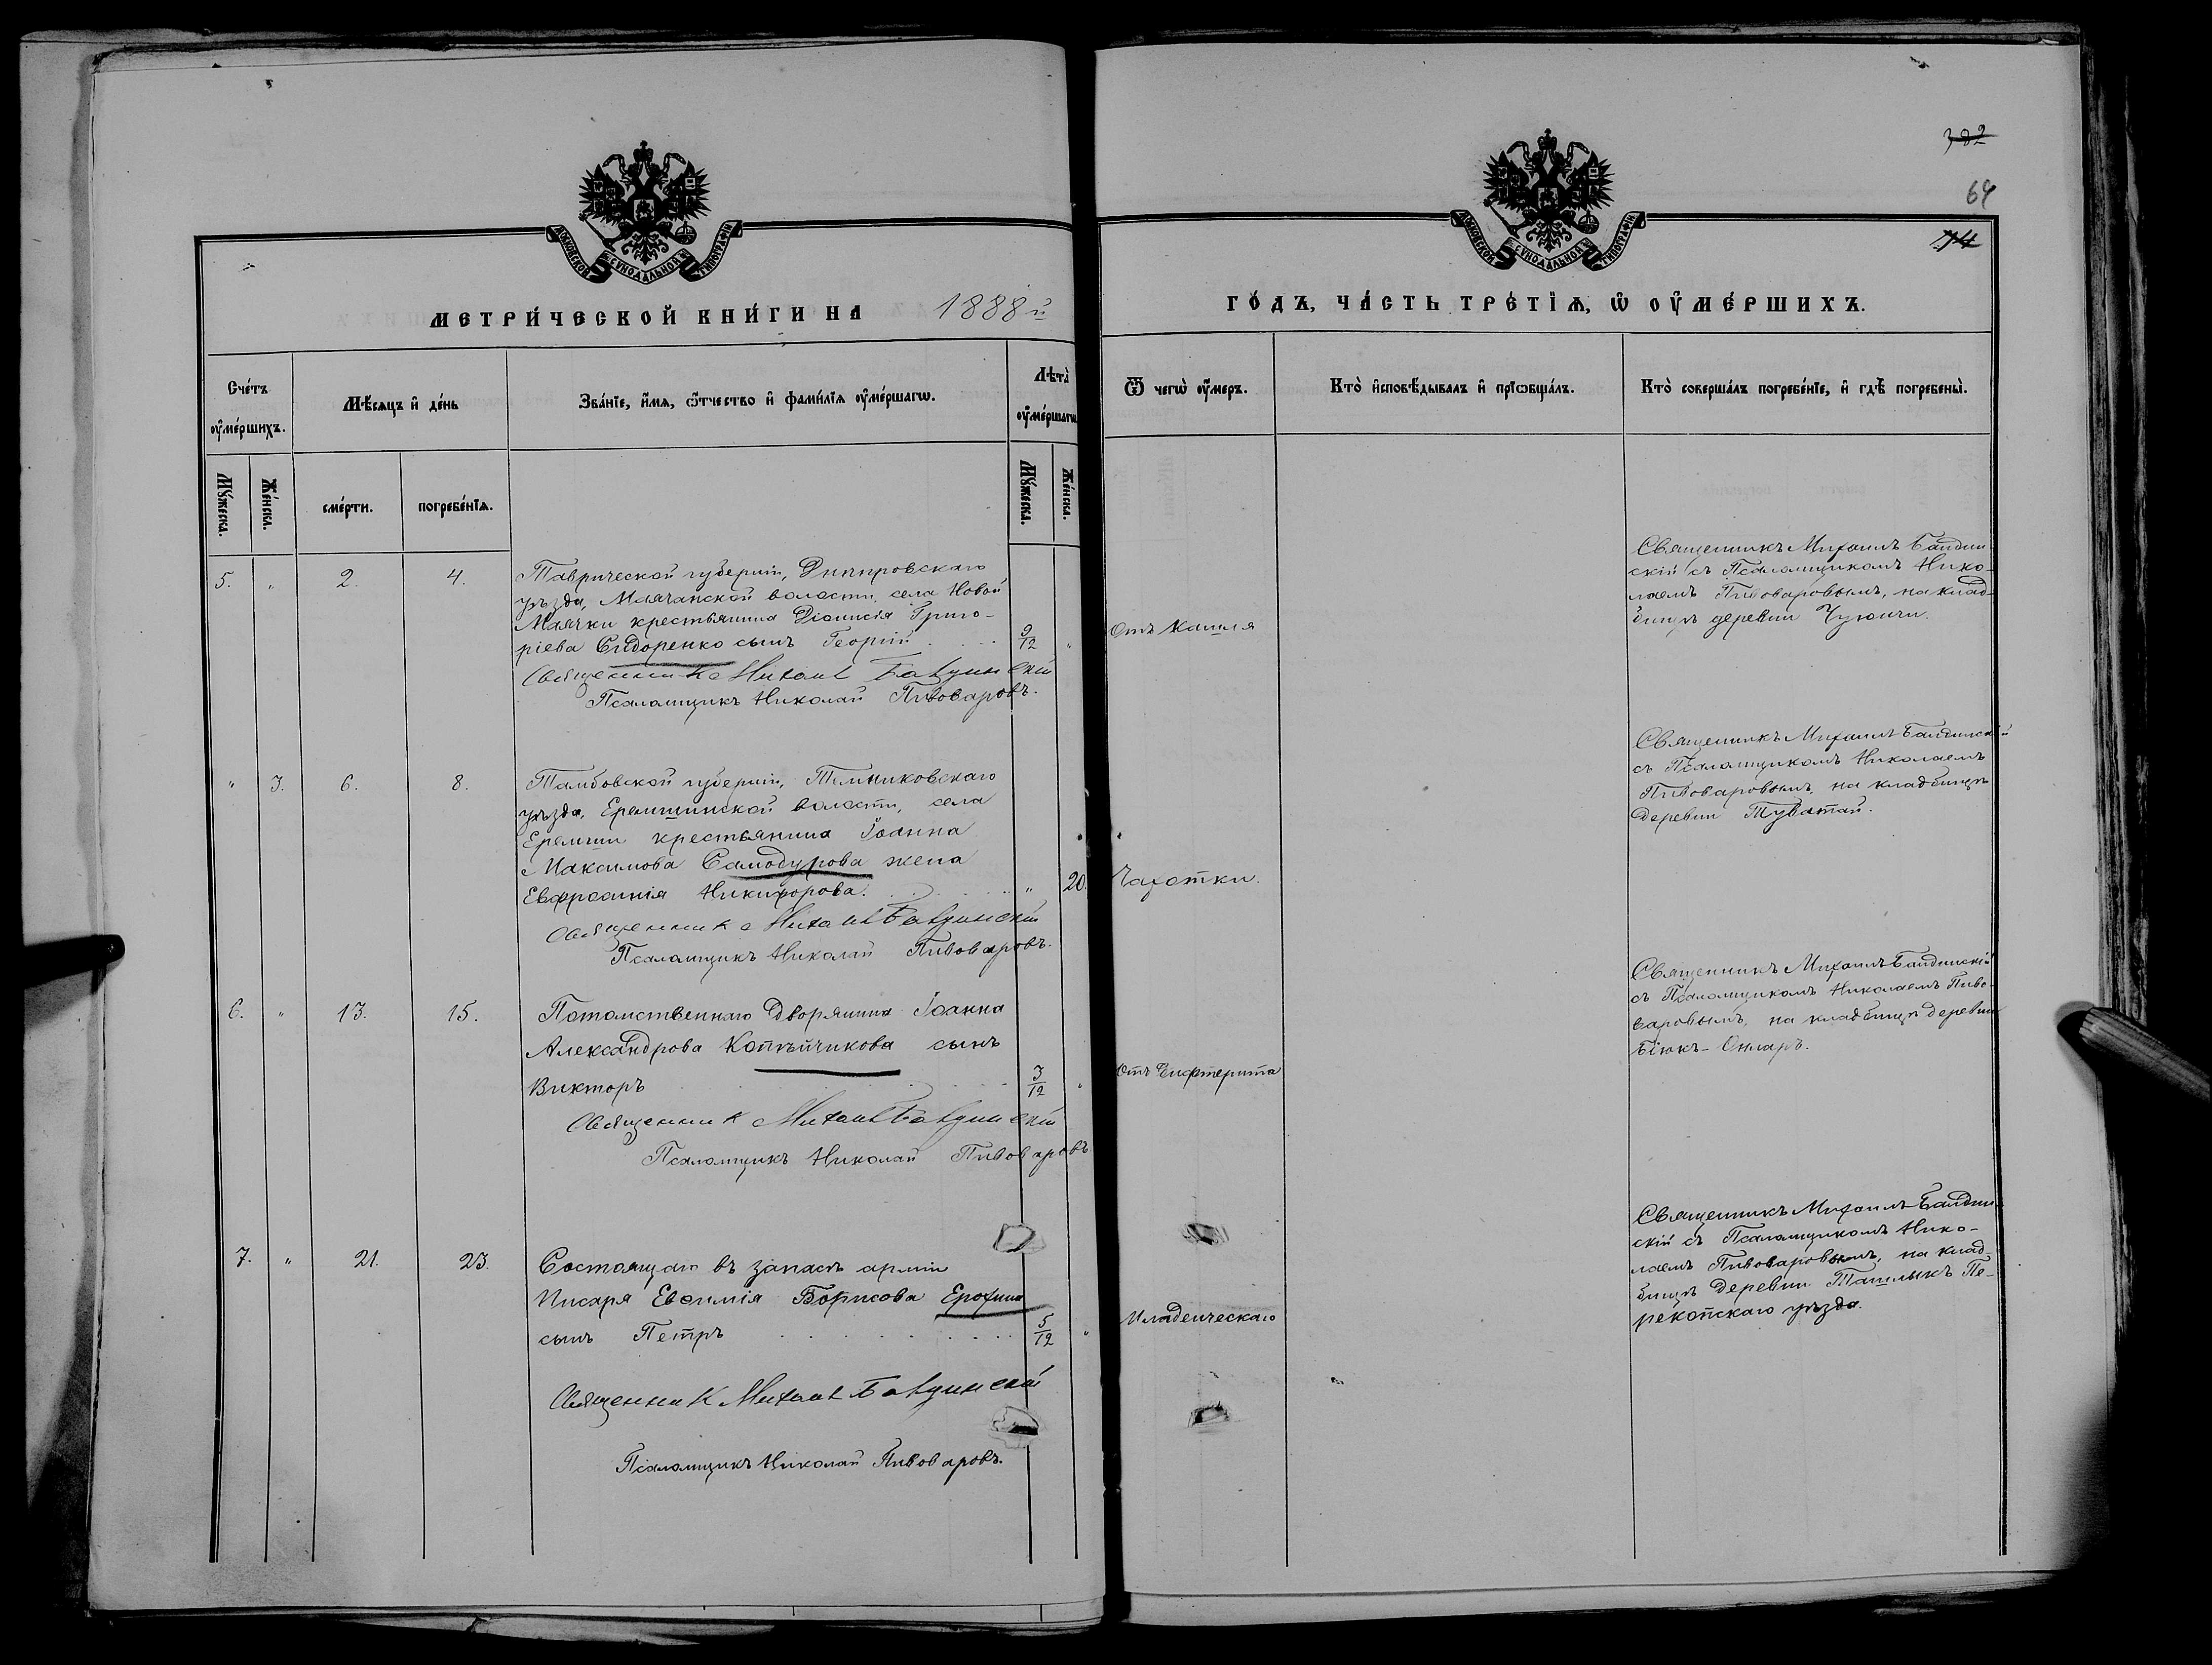 382
64
74
МОСКОВСКОЙ СѴНОДАЛЬНОЙ ТИПОГРАФІИ
МОСКОВСКОЙ СѴНОДАЛЬНОЙ ТИПОГРАФІИ
МЕТРИ́ЧЕСКОЙ КНИ́ГИ НА 1888й
ГО́ДЪ, ЧА́СТЬ ТРЕ́ТЇѦ, Ѡ҆ ОУ҆МЕ́РШИХЪ.
Счетъ оу҆ме́ршихъ.
Мѣ́сяцъ и҆ де́нь
Зва́нїе, и҆́мя, ѻ҆́тчество и҆ фами́лїя оу҆ме́ршагѡ.
Лѣта̀ оу҆ме́ршагѡ
Ѿ чегѡ̀ оу҆́меръ.
Кто̀ и҆сповѣ́дывалъ и҆ прїѡбща́лъ.
Кто̀ соверша́лъ погребе́нїе, и҆ гдѣ̀ погребены̀.
Мꙋ́жеска.
Же́нска.
сме́рти.
погребе́нїѧ.
Мꙋ́жеска.
Же́нска.
5. „ 2. 4.
Таврической губерніи, Днѣпровскаго
уѣзда, Маячанской волости, села Новой
Маячки крестьянина Діонисія Григо-
ріева Сидоренко сынъ Георгій . . . 9/12 „
Священникъ Михаилъ Бандинскій
Псаломщикъ Николай Пивоваровъ.
Отъ Кашля
Священникъ Михаилъ Бандин-
скій съ Псаломщикомъ Нико-
лаемъ Пивоваровымъ, на клад-
бищѣ деревни Чуюнчи.
„ 3. 6. 8.
Тамбовской губерніи, Темниковскаго
уѣзда, Еремшинской волости, села
Еремши крестьянина Іоанна
Максимова Самодурова жена
Евфросинія Никифорова. . . . . „ 20.
Священникъ Михаилъ Бандинскій
Псаломщикъ Николай Пивоваровъ.
Чахотки.
Священникъ Михаилъ Бандинскій
съ Псаломщикомъ Николаемъ
Пивоваровымъ, на кладбищѣ
деревни Туватай.
6. „ 13. 15.
Потомственнаго Дворянина Іоанна
Александрова Копѣйчикова сынъ
Викторъ . . . . . 3/12 „
Священник Михаилъ Бандинскій
Псаломщикъ Николай Пивоваровъ
Отъ Дифтерита
Священникъ Михаилъ Бандинскій
съ Псаломщикомъ Николаемъ Пиво-
варовымъ, на кладбищѣ деревни
Біюкъ-Онларъ.
7. „ 21. 23.
Состоящаго въ запасѣ арміи
Писаря Евѳимія Борисова Ерохина
сынъ Петръ . . . . . . . . 5/12 „
Священник Михаилъ Бандинскій
Псаломщикъ Николай Пивоваровъ.
Младенческаго
Священникъ Михаилъ Бандин-
скій съ Псаломщикомъ Нико-
лаемъ Пивоваровымъ, на клад-
бищѣ деревни Ташлыкъ Пе-
рекопскаго уѣзда.